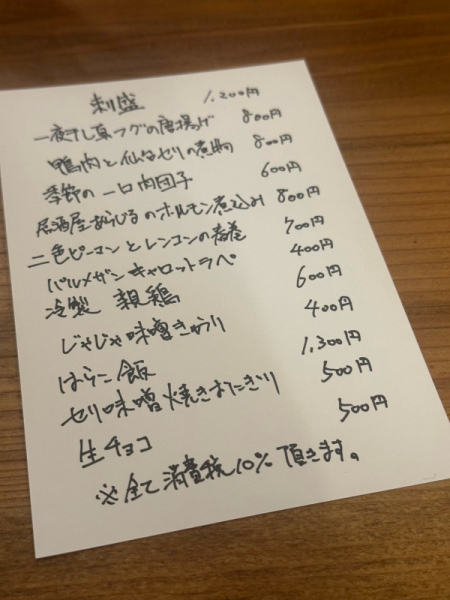 刺盛 1,200円
一夜干し真フグの唐揚げ 800円
鴨肉と仙台セリの煮物 800円
季節の一口肉団子 600円
居酒屋あらびるのホルモン煮込み 800円
二色ピーマンとレンコンの春巻 700円
パルメザンキャロットラペ 400円
冷製 親鶏 600円
じゃじゃ味噌きゅうり 400円
はらこ飯 1,300円
セリ味噌焼きおにぎり 500円
生チョコ 500円
※全て消費税10%頂きます。